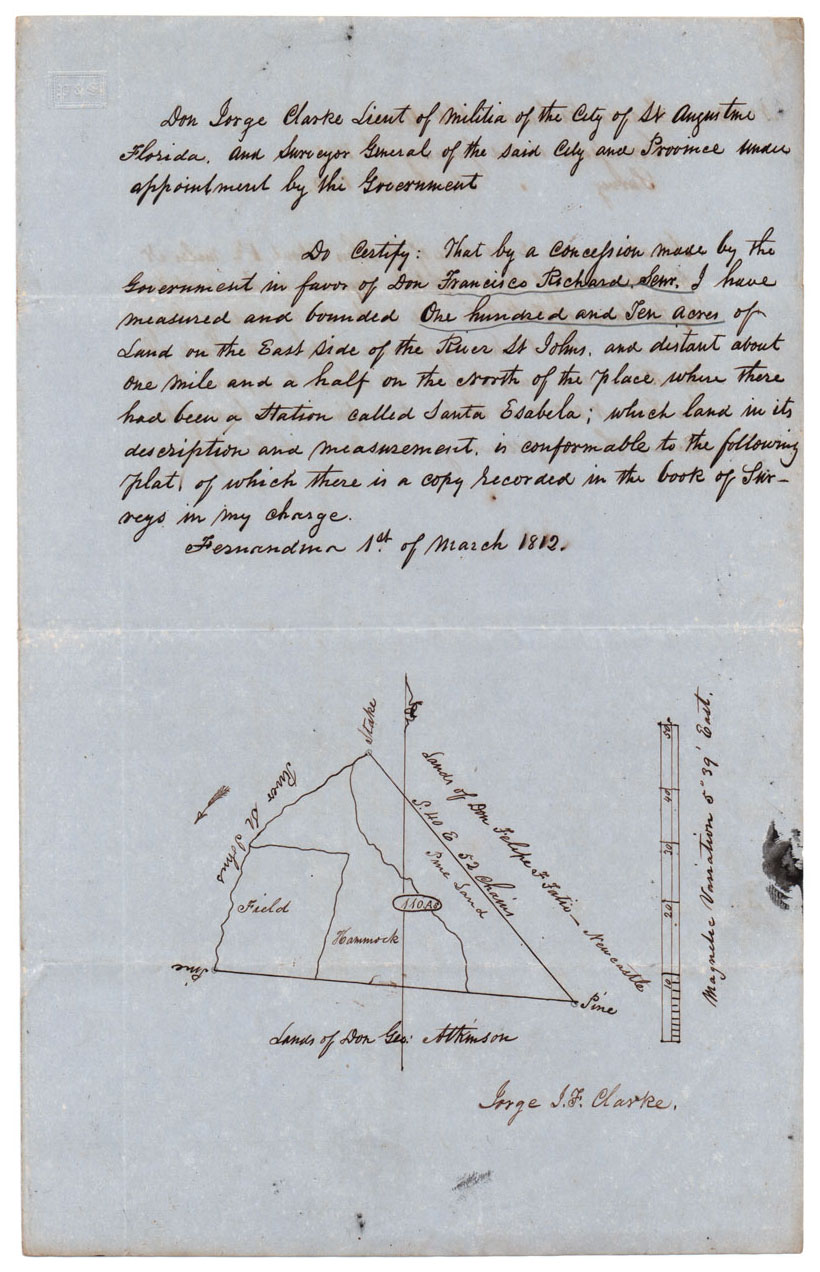 Don Jorge Clarke Lieut of Militia of the City of St Augustine
Florida, and Surveyor General of the said City and Province under
appointment by the Government
Do Certify: That by a concession made by the
Government in favor of Don Francisco Richard, Senr. I have
measured and bounded One hundred and Ten acres of
Land on the East side of the River St Johns, and distant about
one mile and a half on the North of the place where there
had been a Station called Santa Esabela; which land in its
description and measurement, is conformable to the following
plat, of which there is a copy recorded in the book of Sur-
veys in my charge.
Fernandina 1st. of March 1812.
Stake
River St Johns
Lands of Don Felipe F. Fatio — Newcastle
S. 40 E 52 Chains
Pine Land
110 Ac
Field
Hammock
Pine
Pine
Lands of Don Geo: Atkinson
50
40
30
20
10
Magnetic Variation 5° 39' East.
Jorge J. F. Clarke.